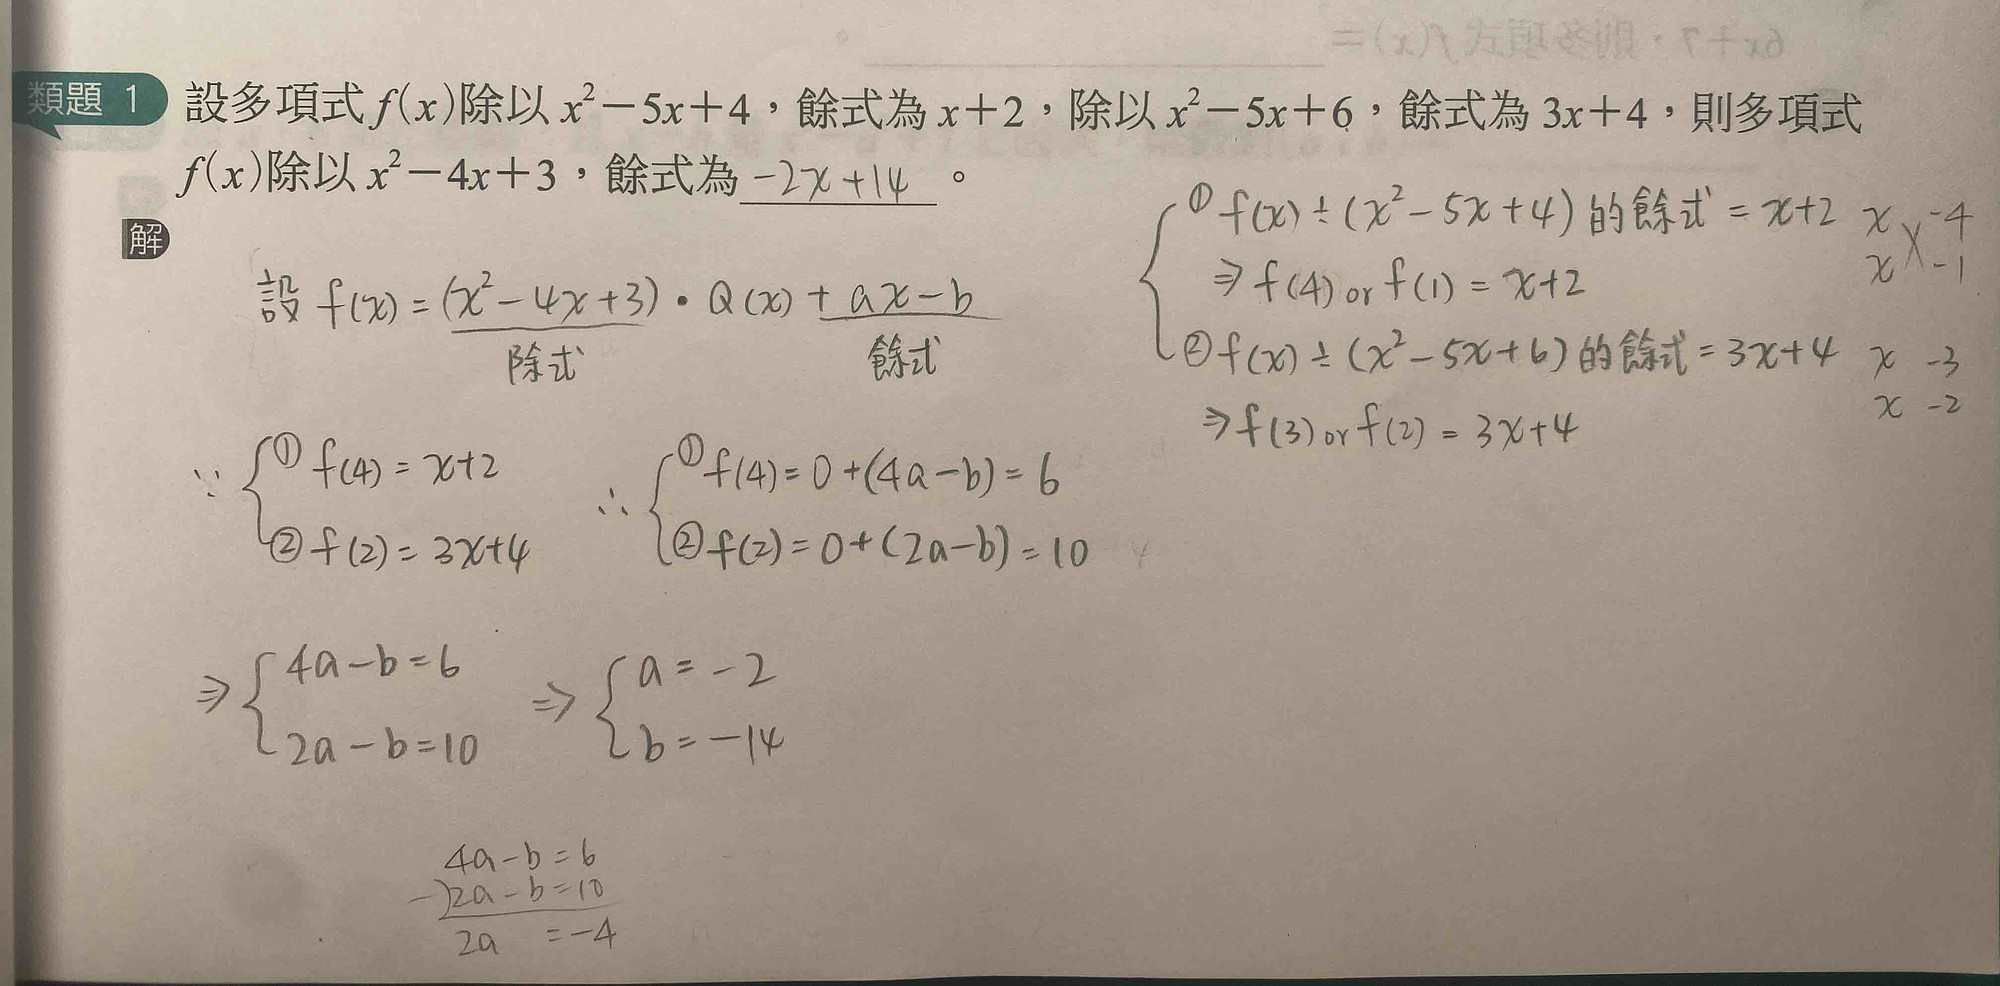 6x+7，則多項式 f(x)=
類題 1 設多項式 f(x)除以 x²−5x+4，餘式為 x+2，除以 x²−5x+6，餘式為 3x+4，則多項式
f(x)除以 x²−4x+3，餘式為 -2x+14 。
解
① f(x) ÷ (x²-5x+4) 的餘式 = x+2 x -4
x -1
⇒ f(4) or f(1) = x+2
② f(x) ÷ (x²-5x+6) 的餘式 = 3x+4 x -3
x -2
⇒ f(3) or f(2) = 3x+4
設 f(x) = (x²-4x+3)・Q(x) + ax-b
除式 餘式
∵ ① f(4) = x+2 ∴ ① f(4) = 0+(4a-b) = 6
② f(2) = 3x+4 ② f(2) = 0+(2a-b) = 10
⇒ 4a-b=6 ⇒ a = -2
2a-b=10 b = -14
4a-b=6
-)2a-b=10
2a =-4